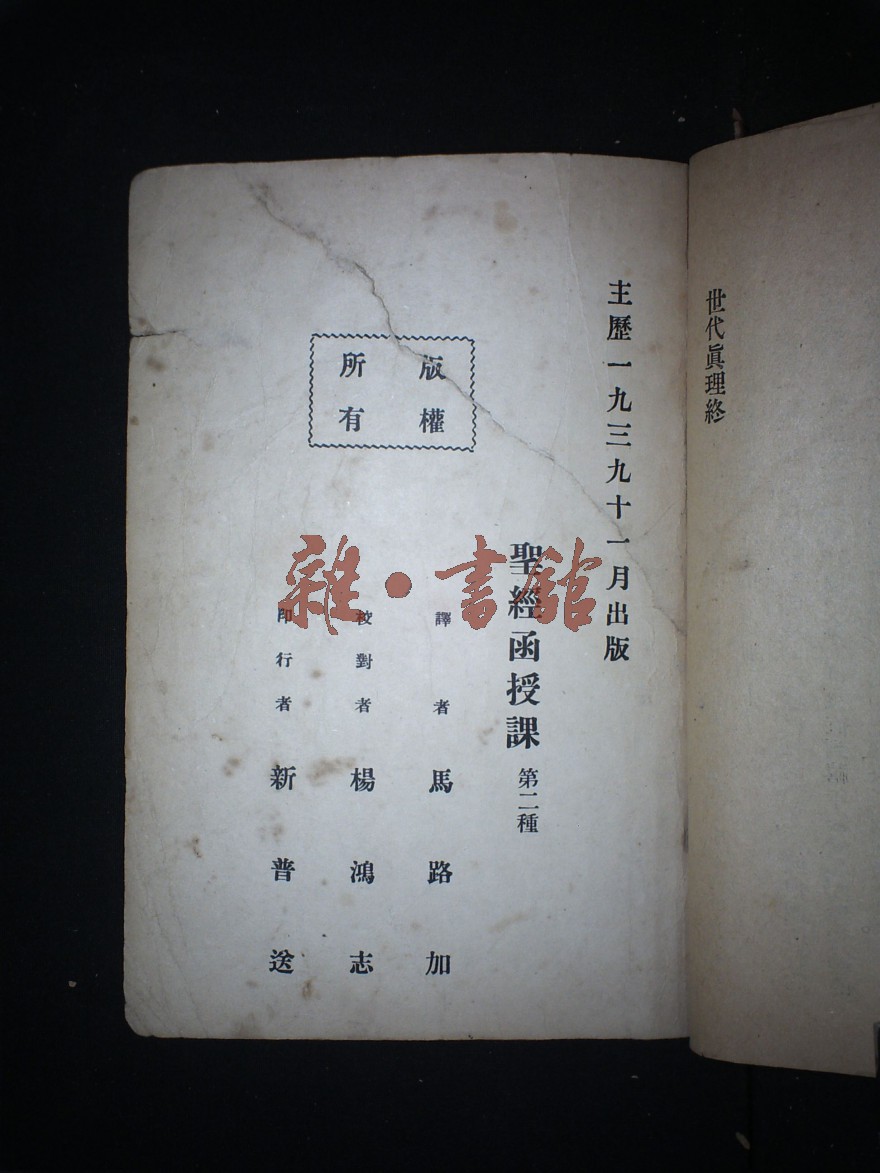 世代眞理終
主歷一九三九十一月出版
聖經函授課 第二種
譯者 馬路加
校對者 楊鴻志
印行者 新普送
版權
所有
雜·書館